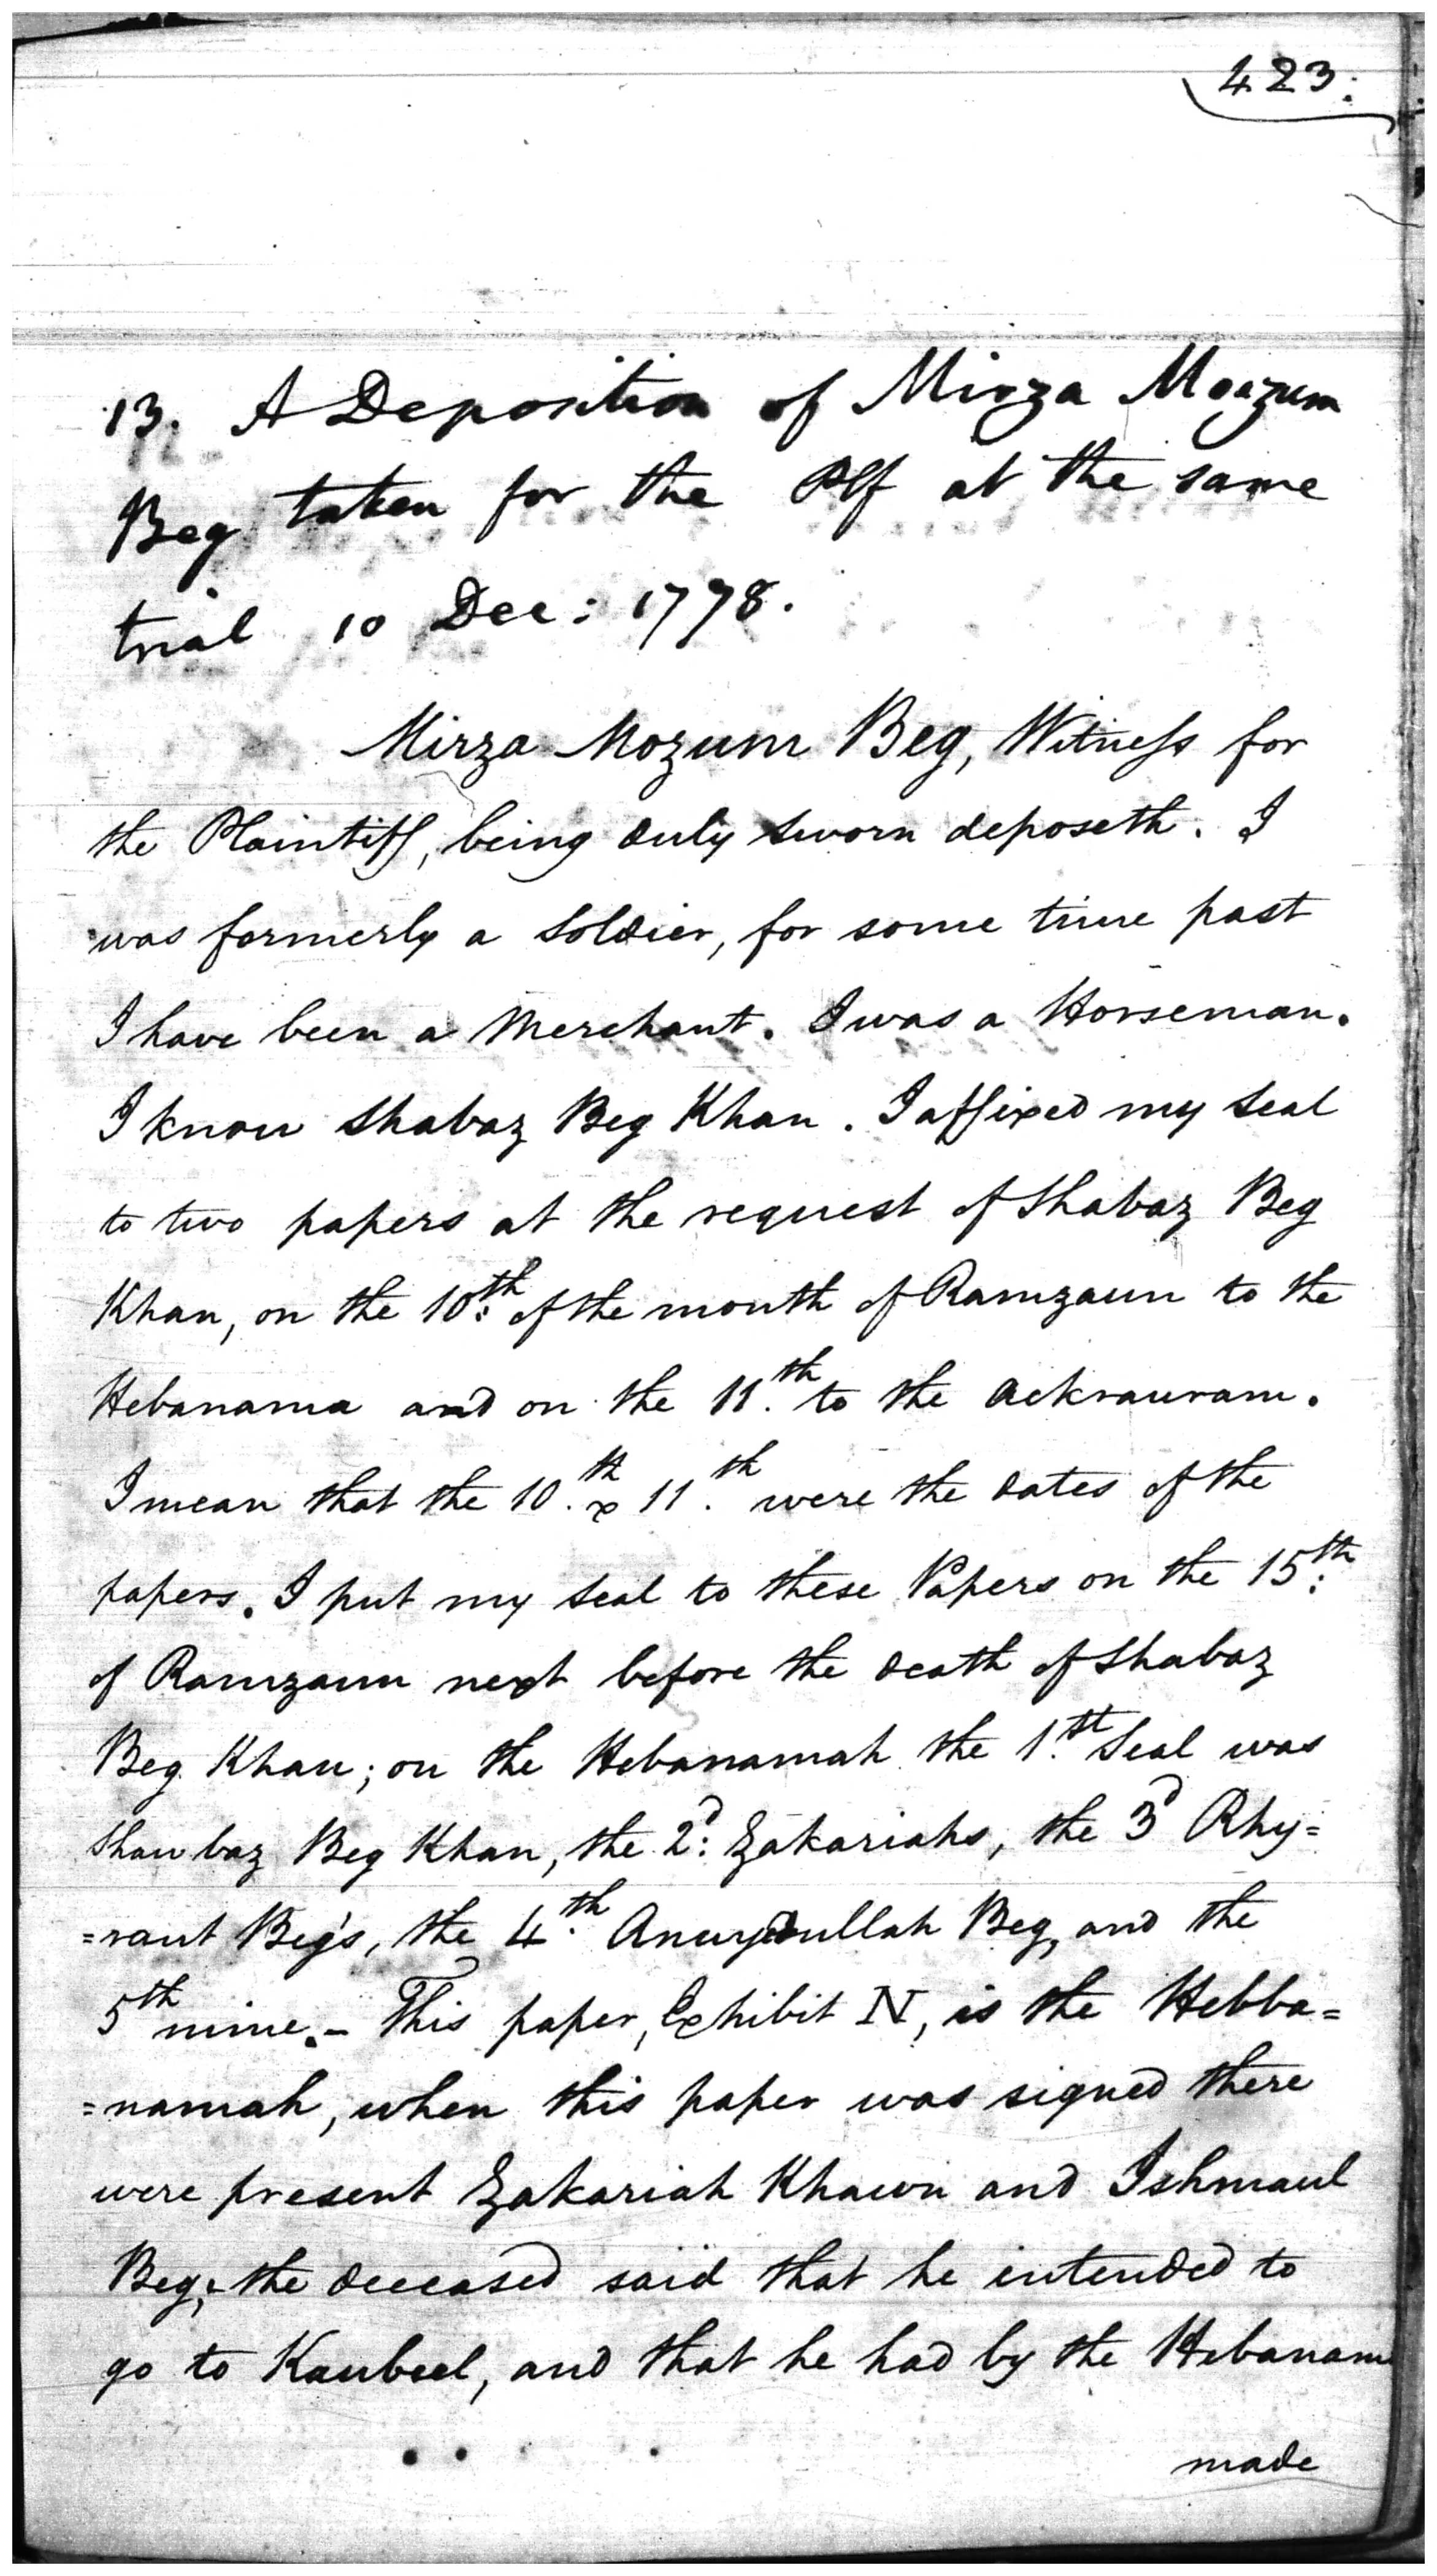 423.
13. A Deposition of Mirza Moazum
Beg taken for the Plf at the same
trial 10 Dec: 1778.
Mirza Mozum Beg, Witness for
the Plaintiff, being duly sworn deposeth. I
was formerly a Soldier, for some time past
I have been a Merchant. I was a Horseman.
I know Shabaz Beg Khan. I affixed my Seal
to two papers at the request of Shabaz Beg
Khan, on the 10th: of the month of Ramzaun to the
Hebanama and on the 11.th to the Ackrauram.
I mean that the 10.th & 11.th were the dates of the
papers. I put my Seal to these Papers on the 15:th
of Ramzaun next before the death of Shabaz
Beg Khan; on the Hebanamah the 1.st Seal was
Shaubaz Beg Khan, the 2d: Zakariahs, the 3d Rhy=
=raut Beg's, the 4.th Beg, and the
5th mine.- This paper, Exhibit N, is the Hebba=
=namah, when this paper was signed there
were present Zakariah Khawn and Ishmaul
Beg, the deceased said that he intended to
go to Kaubeel, and that he had by the Hebanama
made